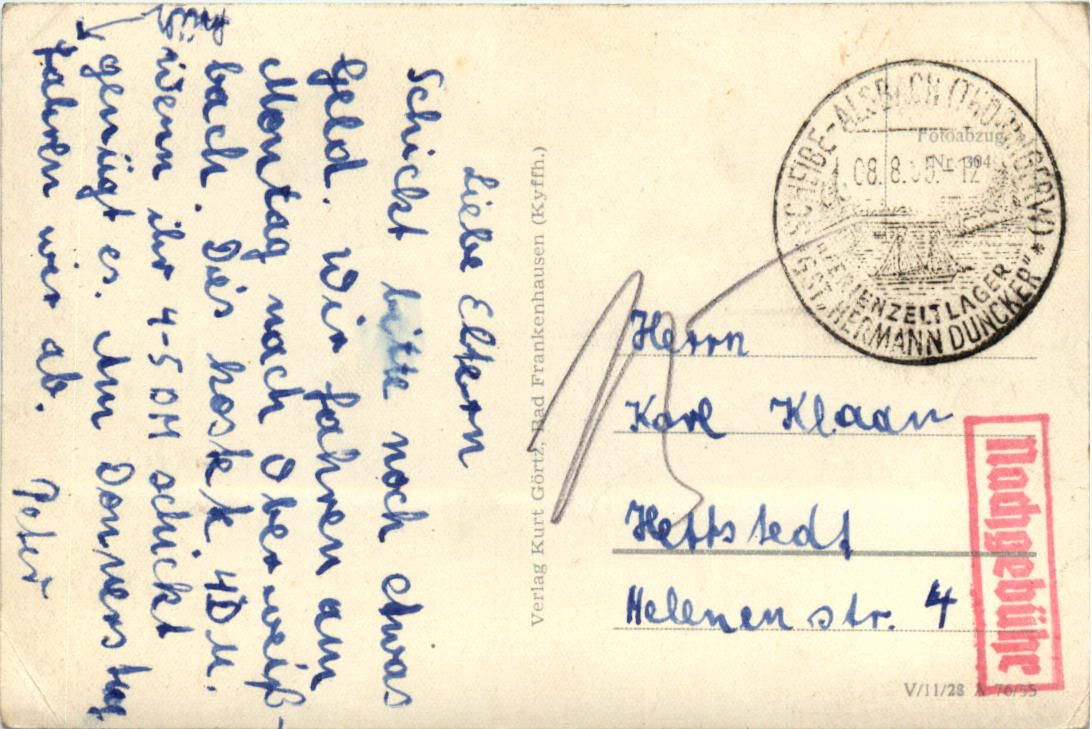 Liebe Eltern
Schickt bitte noch etwas
Geld. Wir fahren am
Montag nach Oberweiß-
bach. Dies kostet 4DM.
wenn ihr 4-5 DM schickt
genügt es. Am Donnerstag
fahren wir ab.
Peter
Verlag Kurt Görtz, Bad Frankenhausen (Kyffh.)
SCHEIBE-ALSBACH (THÜRINGERW)
08.8. 5.-12
"FERIENZELTLAGER
GST "HERMANN DUNCKER"
Fotoabzug
Nr. 304
Herrn
Karl Klaan
Hettstedt
Helenenstr. 4
Nachgebühr
V/11/28 A 76/55